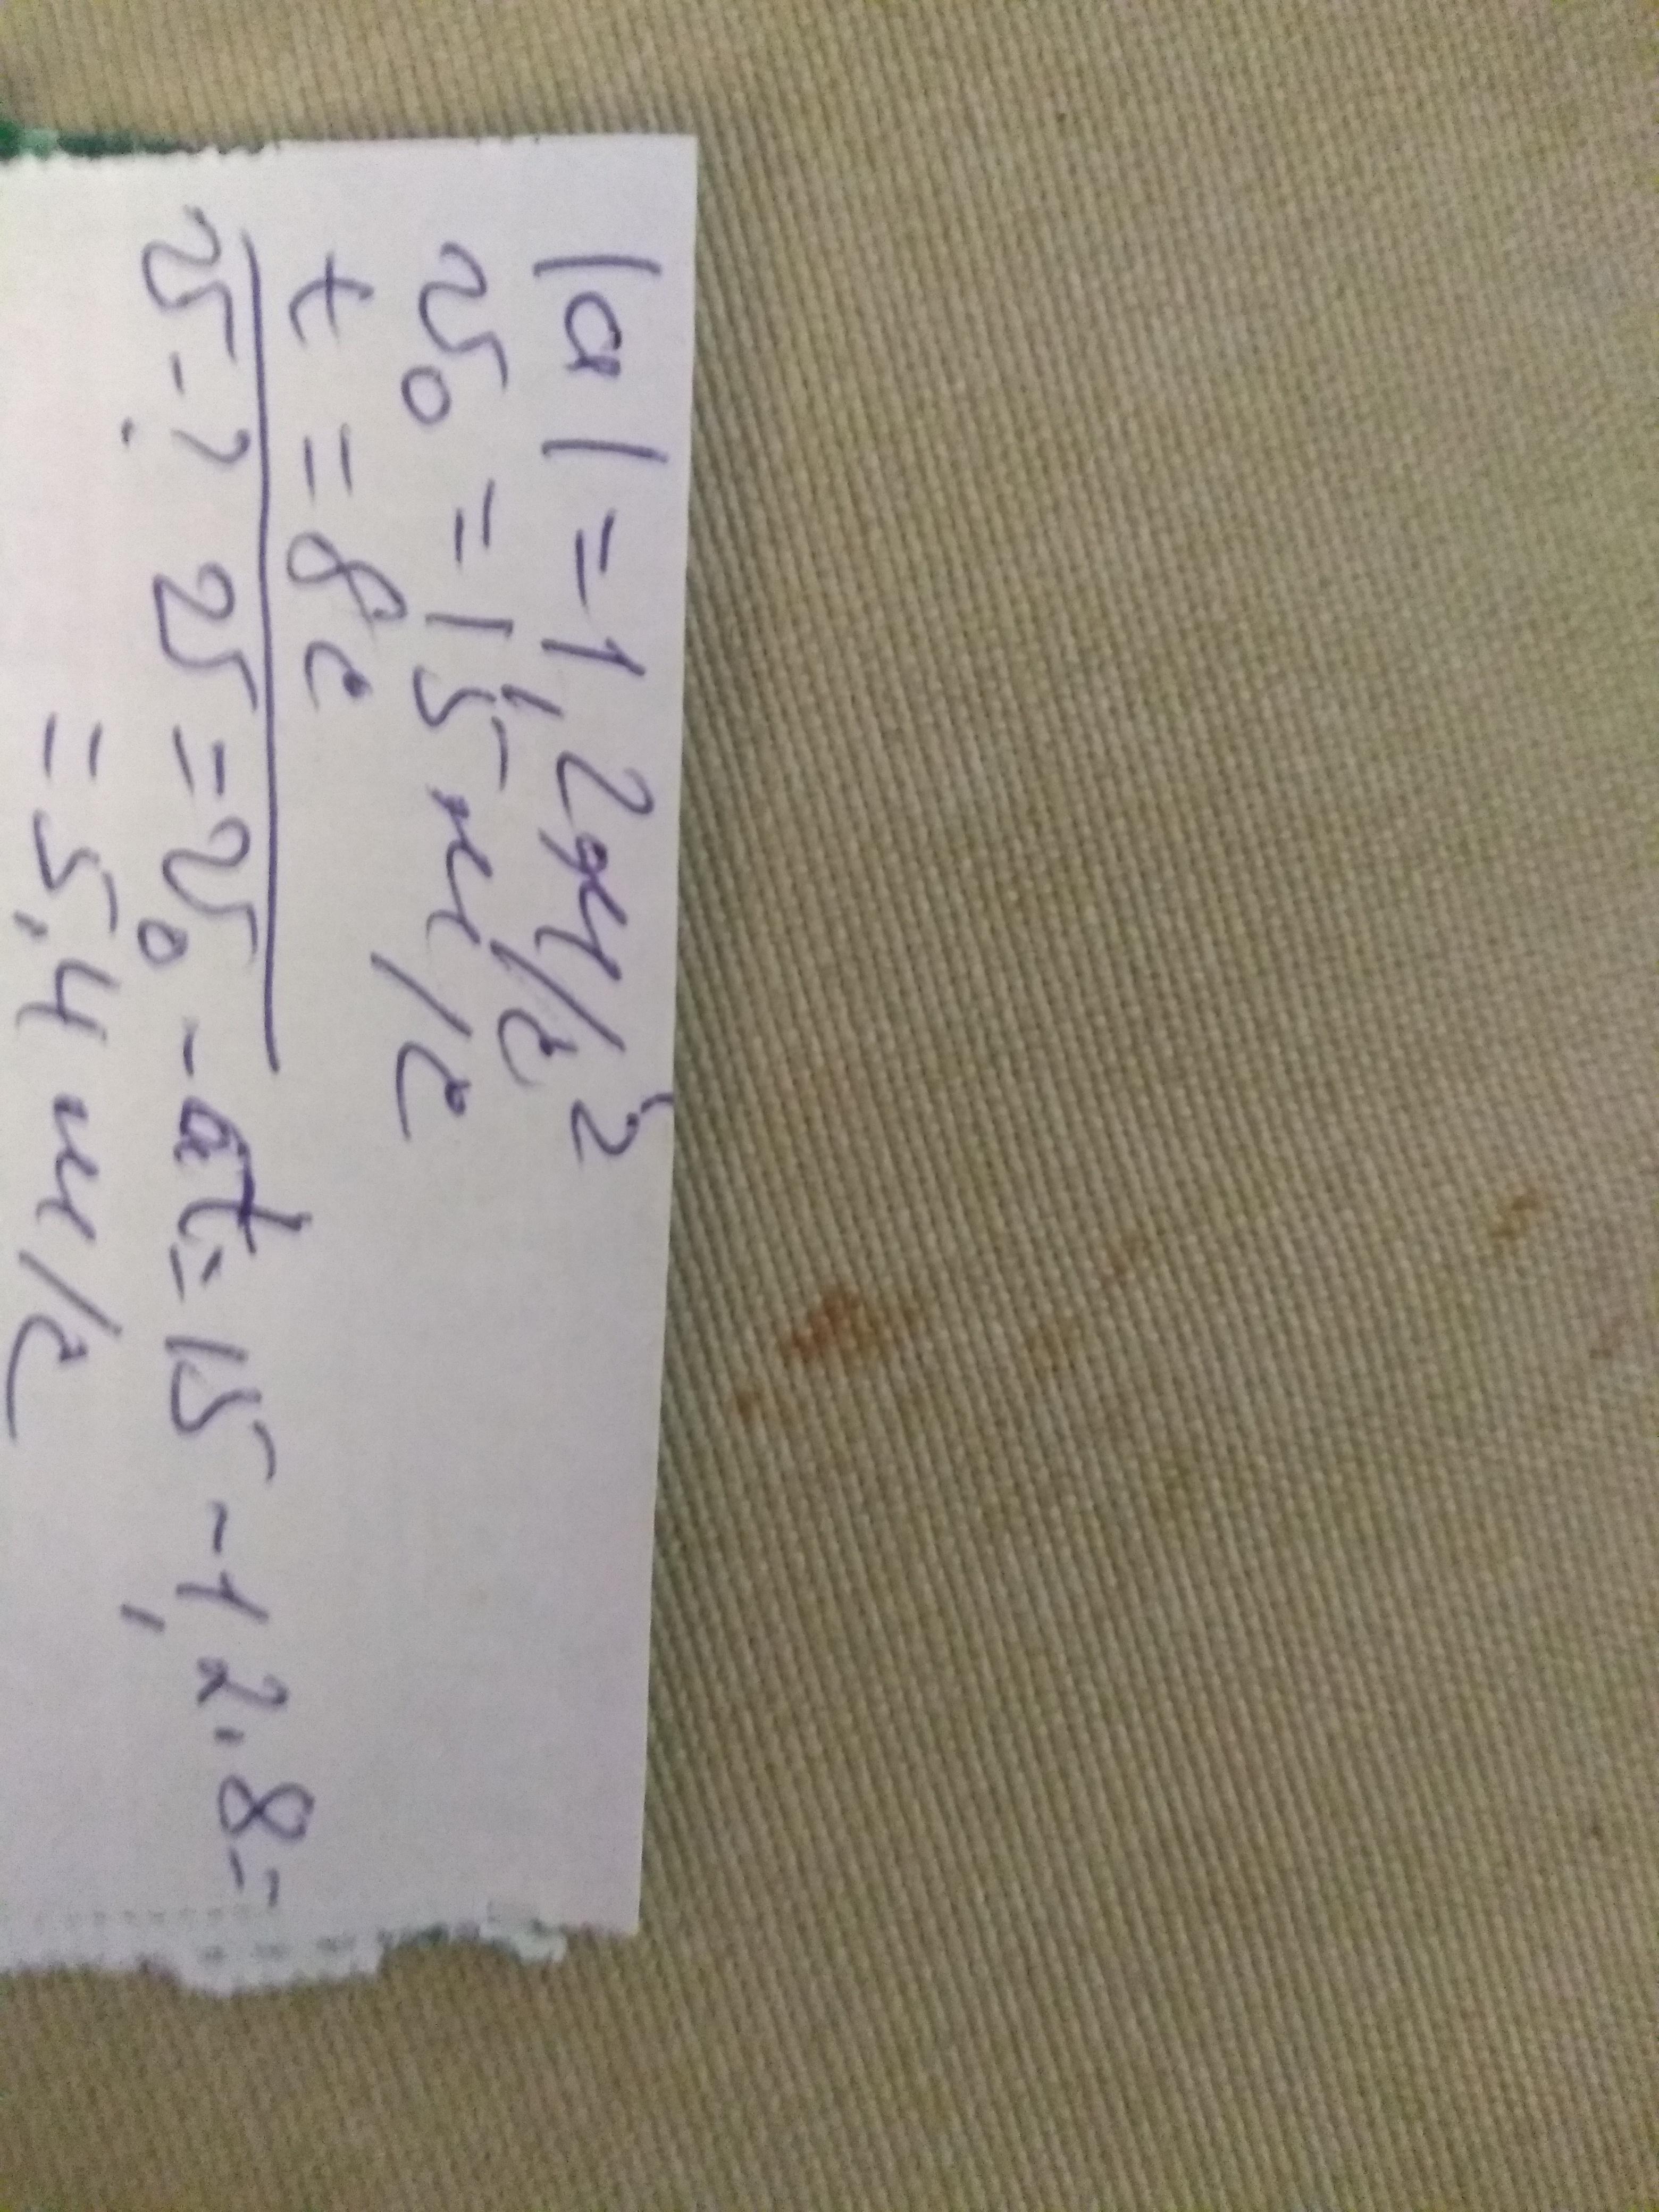 |a| = 1,2 м/с²
v₀ = 15 м/с
t = 8с
v - ? v = v₀ - at = 15 - 1,2 . 8 =
= 5,4 м/с